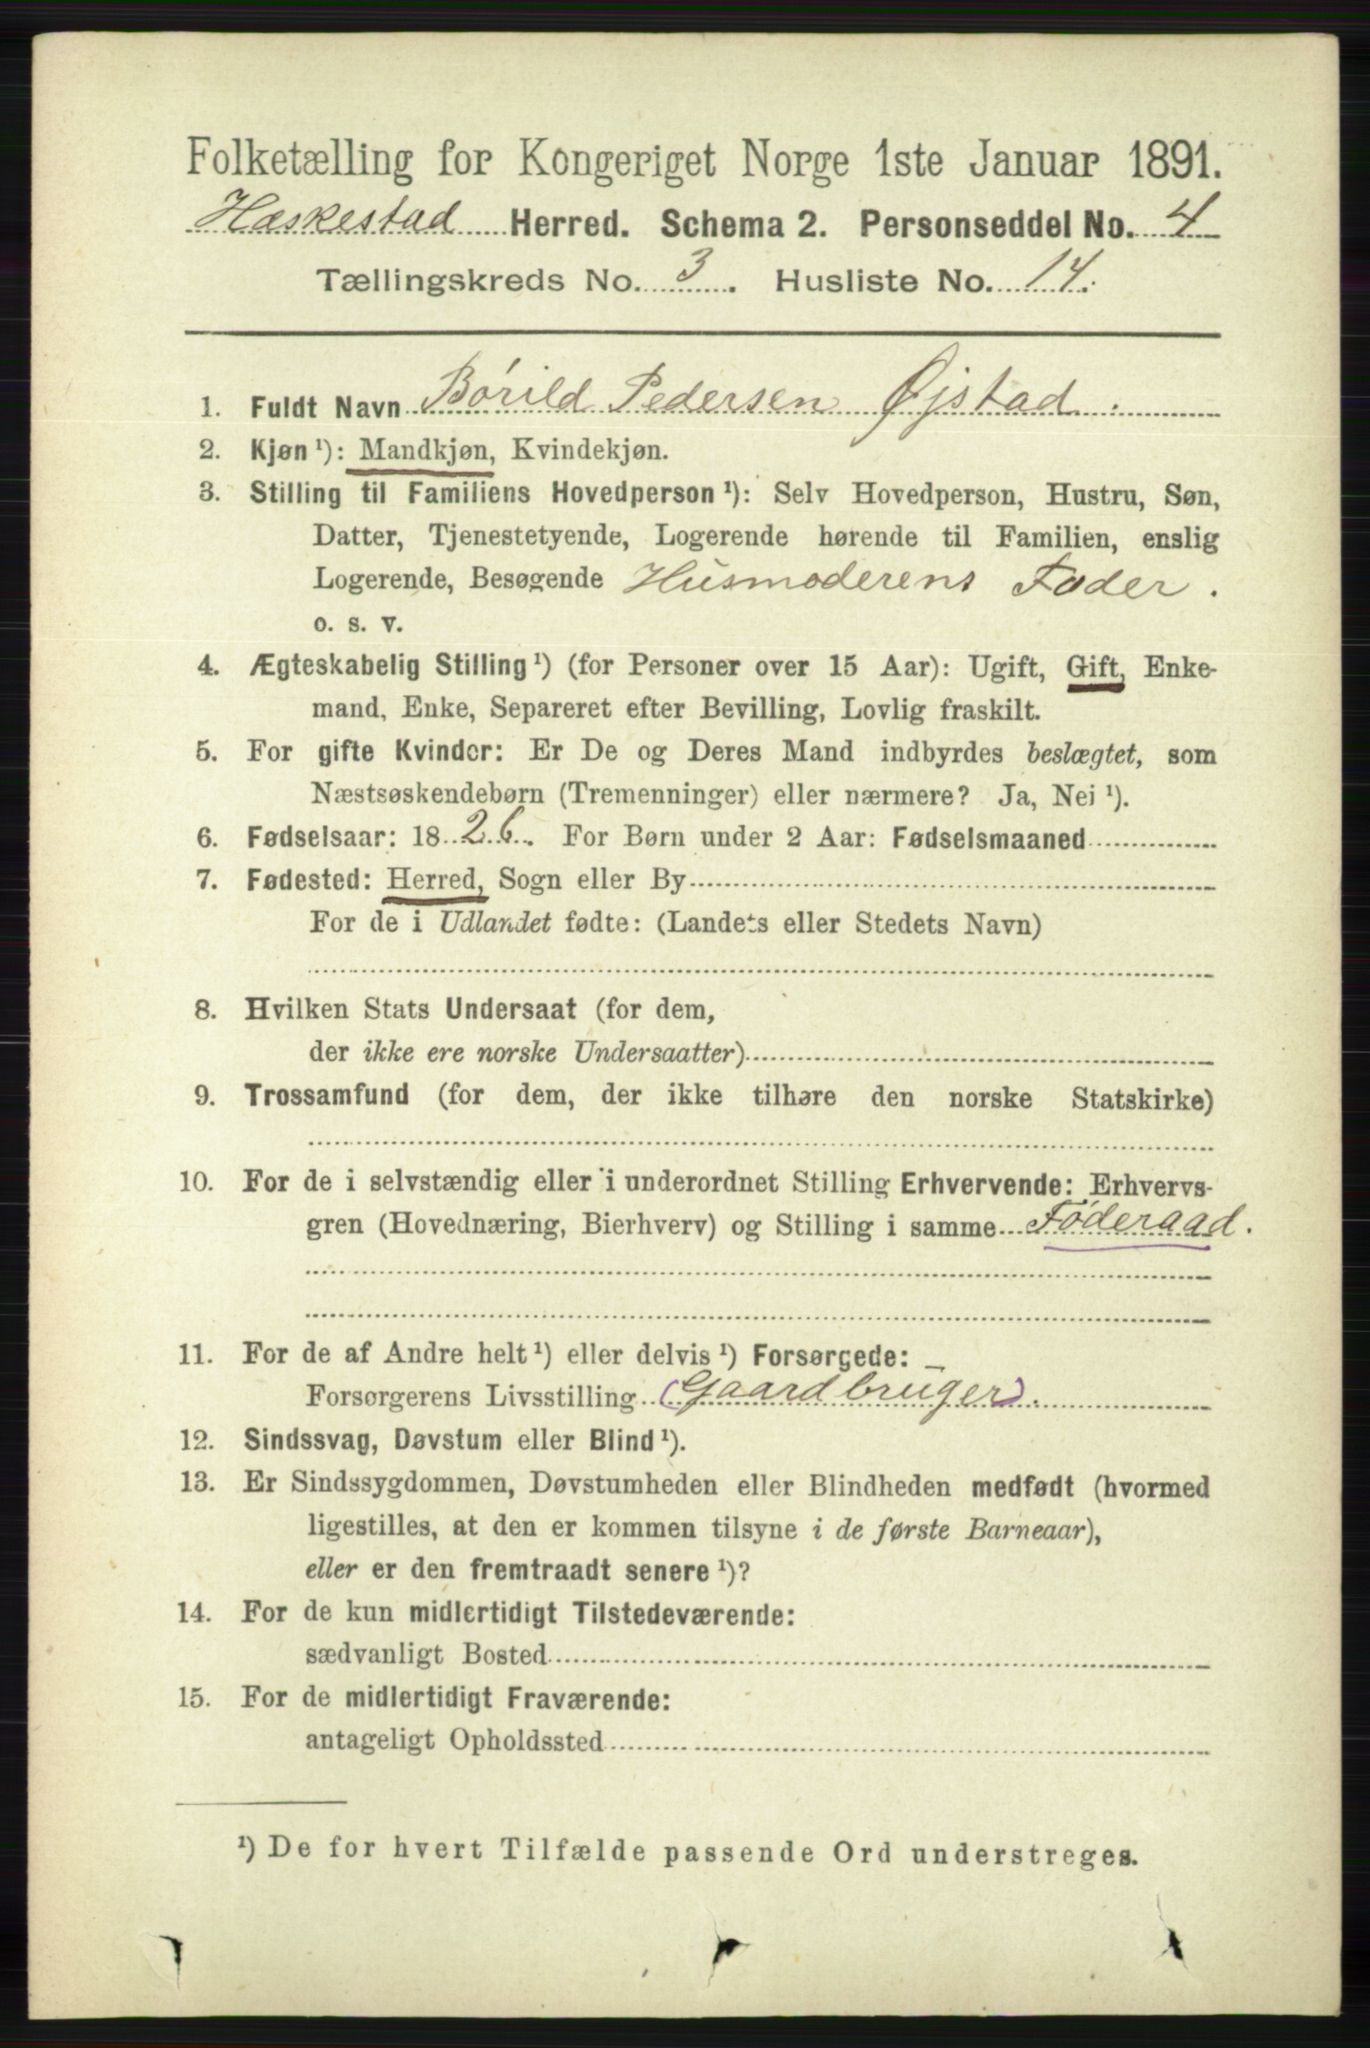 Folketælling for Kongeriget Norge 1ste Januar 1891.
Hæskestad Herred. Schema 2. Personseddel No. 4
Tællingskreds No. 3. Husliste No. 14.
1. Fuldt Navn Børild Pedersen Øjstad.
2. Kjøn ¹): Mandkjøn, Kvindekjøn.
3. Stilling til Familiens Hovedperson ¹): Selv Hovedperson, Hustru, Søn,
Datter, Tjenestetyende, Logerende hørende til Familien, enslig
Logerende, Besøgende Husmoderens Fader.
o. s. v.
4. Ægteskabelig Stilling ¹) (for Personer over 15 Aar): Ugift, Gift, Enke-
mand, Enke, Separeret efter Bevilling, Lovlig fraskilt.
5. For gifte Kvinder: Er De og Deres Mand indbyrdes beslægtet, som
Næstsøskendebørn (Tremenninger) eller nærmere? Ja, Nei ¹).
6. Fødselsaar: 1826. For Børn under 2 Aar: Fødselsmaaned
7. Fødested: Herred, Sogn eller By
For de i Udlandet fødte: (Landets eller Stedets Navn)
8. Hvilken Stats Undersaat (for dem,
der ikke ere norske Undersaatter)
9. Trossamfund (for dem, der ikke tilhøre den norske Statskirke)
10. For de i selvstændig eller i underordnet Stilling Erhvervende: Erhvervs-
gren (Hovednæring, Bierhverv) og Stilling i samme Føderaad.
11. For de af Andre helt ¹) eller delvis ¹) Forsørgede:
Forsørgerens Livsstilling (Gaardbruger).
12. Sindssvag, Døvstum eller Blind ¹).
13. Er Sindssygdommen, Døvstumheden eller Blindheden medfødt (hvormed
ligestilles, at den er kommen tilsyne i de første Barneaar),
eller er den fremtraadt senere ¹)?
14. For de kun midlertidigt Tilstedeværende:
sædvanligt Bosted
15. For de midlertidigt Fraværende:
antageligt Opholdssted
¹) De for hvert Tilfælde passende Ord understreges.